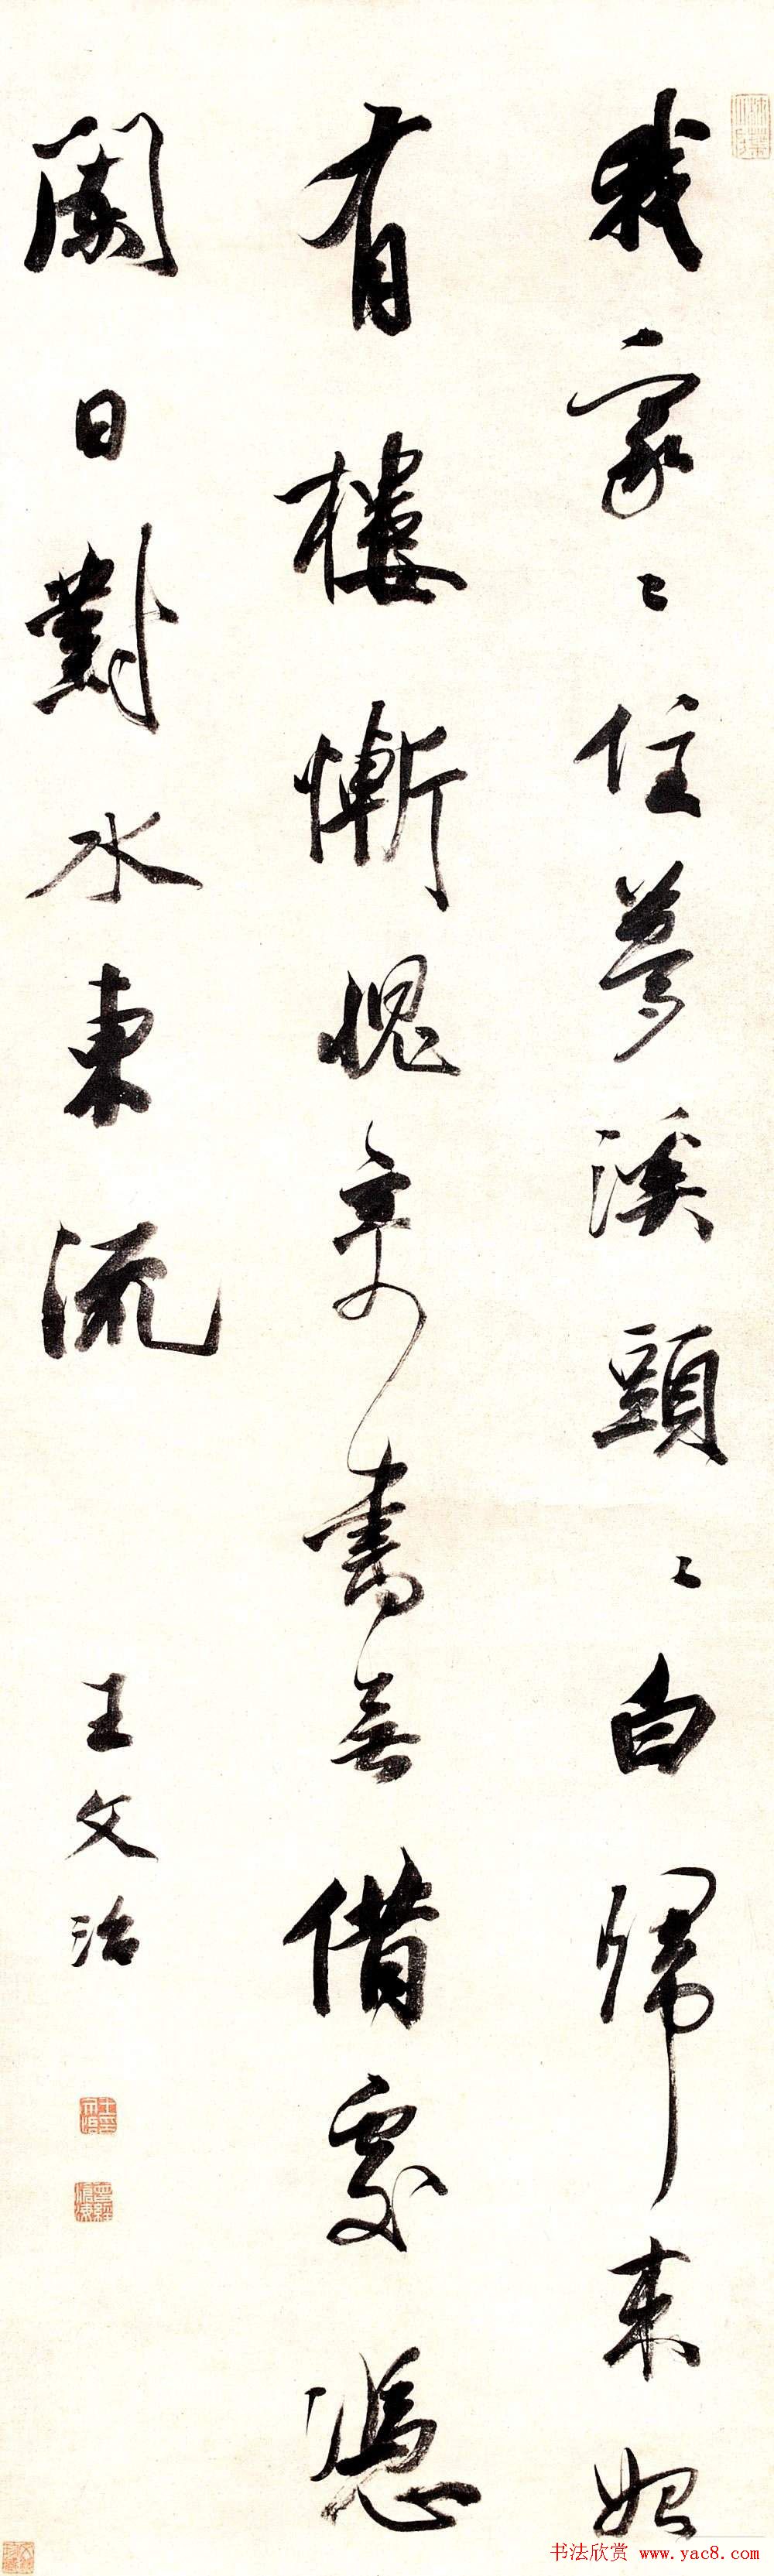 我家〻住夢溪頭〻白歸来始
有樓慚愧奇書無借處憑
闌日對水東流
王文治
书法欣赏 www.yac8.com